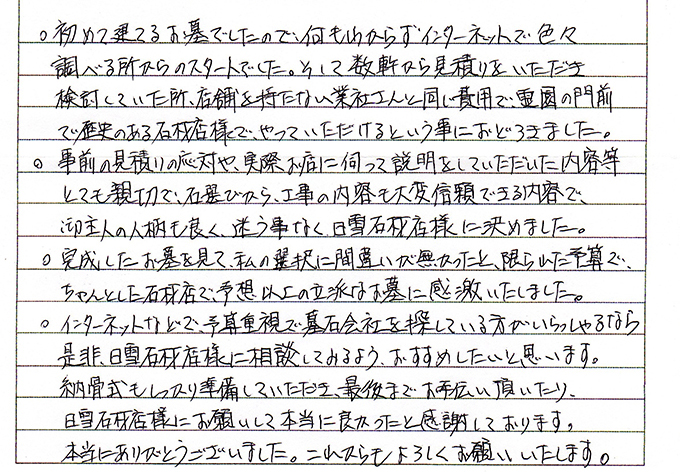 ○ 初めて建てるお墓でしたので、何もわからずインターネットで色々
調べる所からのスタートでした。そして数軒から見積りをいただき
検討していた所、店舗を持たない業社さんと同じ費用で、霊園の門前
で歴史のある石材店様で、やっていただけるという事におどろきました。
○ 事前の見積りの応対や、実際お店に伺って説明をしていただいた内容等
とても親切で、石選びから、工事の内容も大変信頼できる内容で、
御主人の人柄も良く、迷う事なく、日雪石材店様に決めました。
○ 完成したお墓を見て、私の選択に間違いが無かったと、限られた予算で、
ちゃんとした石材店で、予想以上の立派なお墓に感激いたしました。
○ インターネットなどで、予算重視で墓石会社を探している方がいらっしゃるなら
是非、日雪石材店様に相談してみるよう、おすすめしたいと思います。
納骨式もしっかり準備していただき、最後までお手伝い頂いたり、
日雪石材店様にお願いして本当に良かったと感謝しております。
本当にありがとうございました。これからもよろしくお願いいたします。